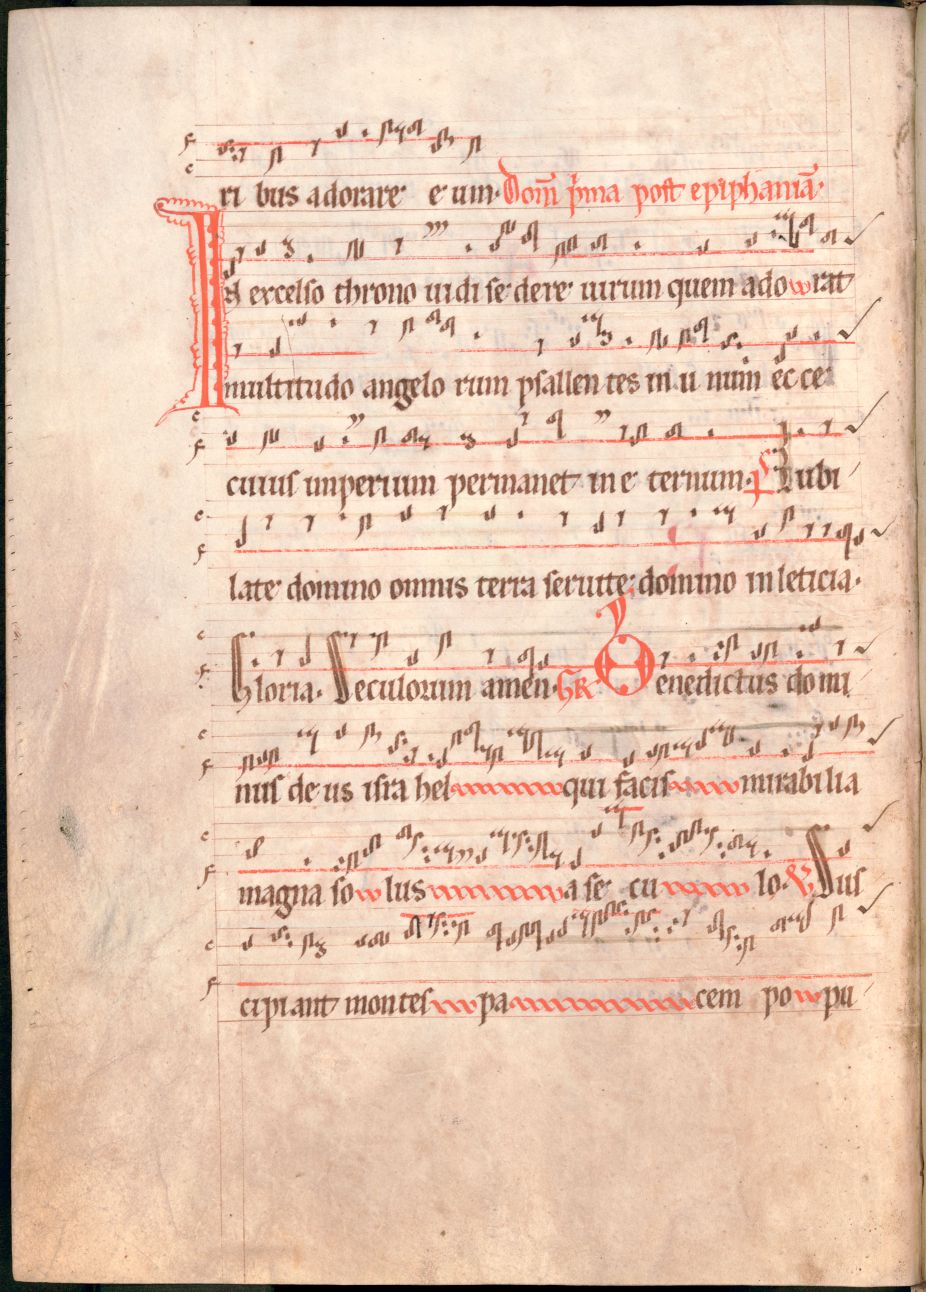 ri bus adorare e um. Dom̄ p̄ma post epiphaniā.
In excelso throno ui di se dere uirum quem ado rat
multitudo angelo rum psallen tes in u num ec ce
cuius imperium permanet in e ternum. ps Iubi
late domino omnis terra seruite domino in leticia.
Gloria. Seculorum amen. Gr Benedictus do mi
nus de us isra hel qui facis mirabilia
magna so lus a se cu lo. V Sus
cipiant montes pa cem po pu